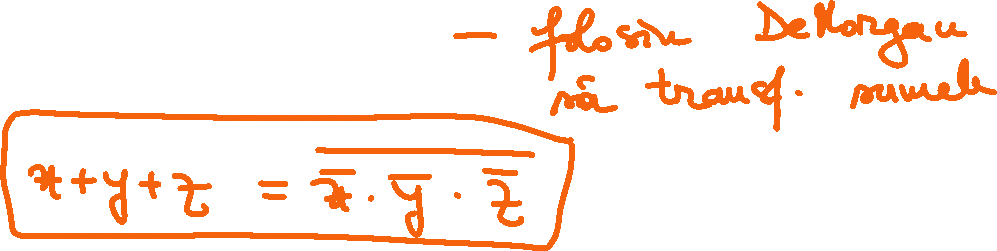 — folosim DeMorgan
să transf. sumele
x+y+z = \overline{\overline{x} · \overline{y} · \overline{z}}